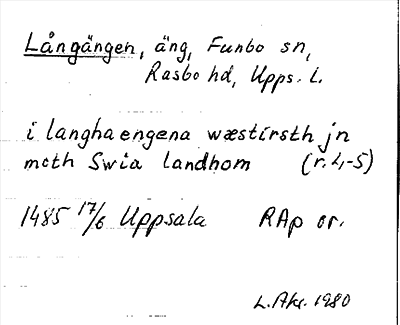 Långängen, äng, Funbo sn,
Rasbo hd, Upps. l.
i langhaengena wæstirsth jn
meth Swia landhom (r. 4-5)
1485 17/6 Uppsala RAp or.
L. Akr. 1980